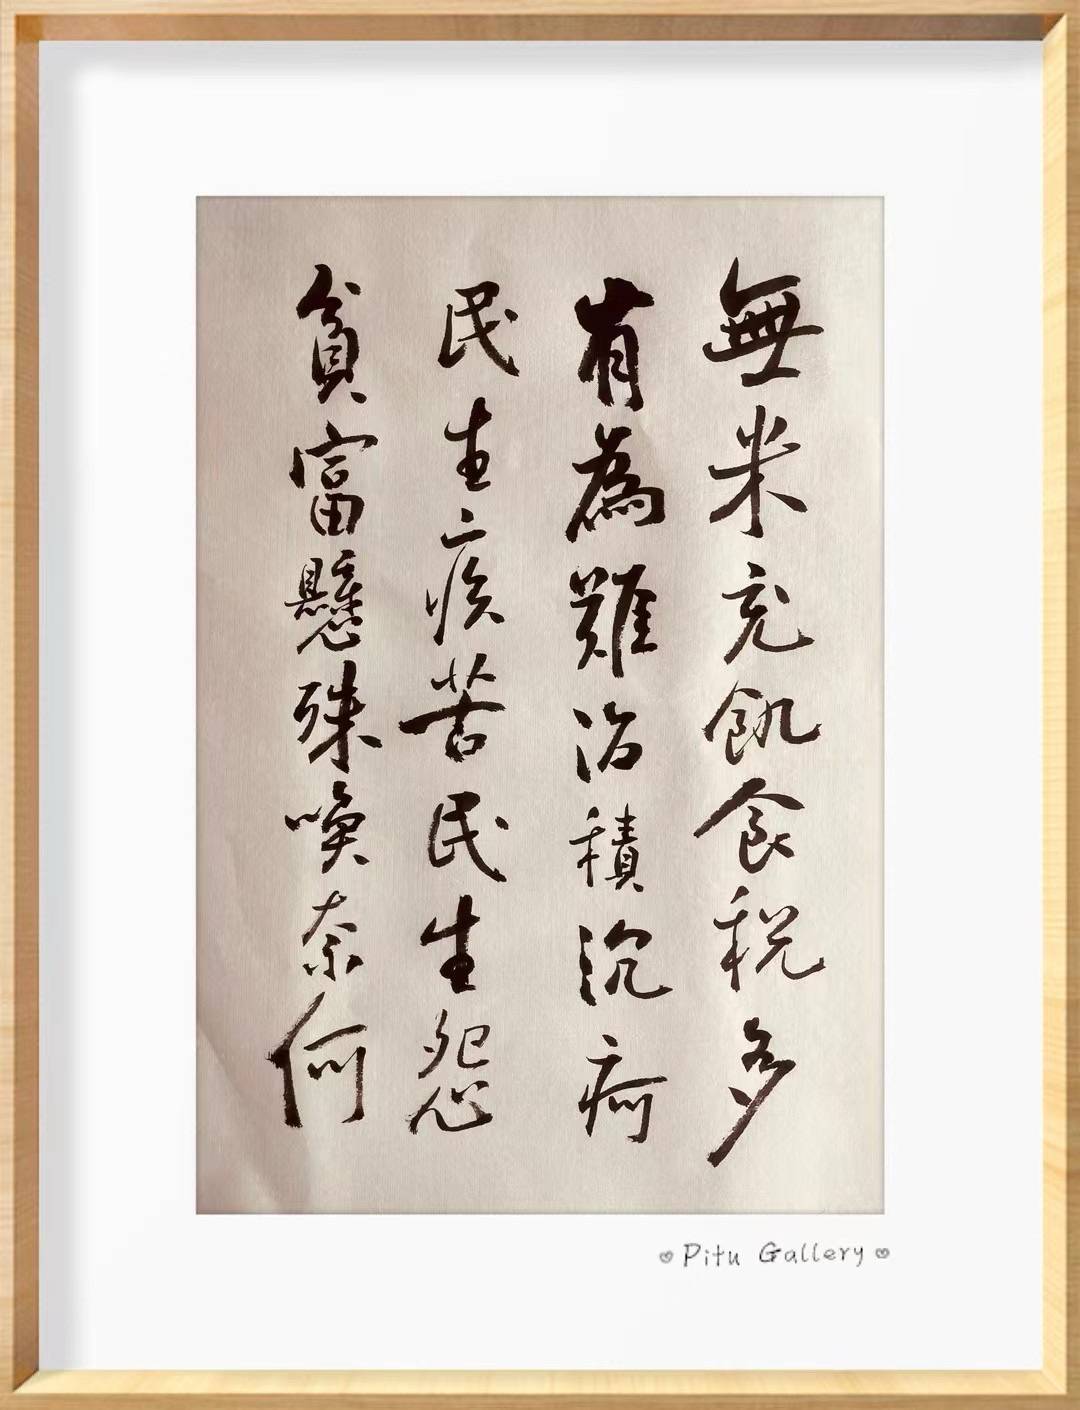 無米充飢食税多
有為難治積沉疴
民生疾苦民生怨
貧富懸殊喚奈何
Pitu Gallery